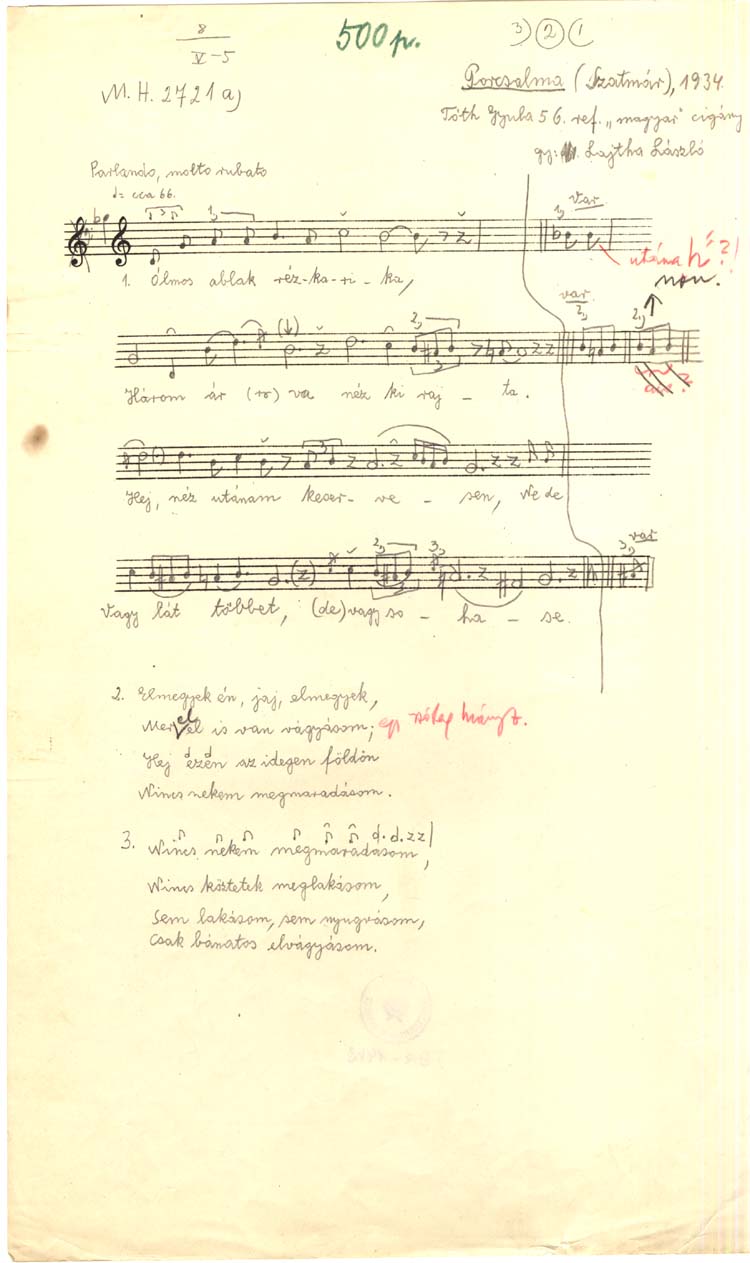 8
V-5
500 p.
3) 2 1
M. H. 2721 a)
Porcsalma (Szatmár), 1934.
Tóth Gyula 56. ref. „magyar" cigány
gy: Lajtha László
Parlando, molto rubato
= cca 66.
var
utána h'?!
non.
1. Ólmos ablak réz-ka-ri-ka,
var.
2,)
2,)
2,)
Három ár (ro) va néz ki raj - ta.
Hej, néz utánam keser-ve - sen, De de
2,)
3,)
3,)
var
Vagy lát többet, (de) vagy so - ha - se.
2. Elmegyek én, jaj, elmegyek,
Mer el is van vágyásom; egy szótag hányz.
Hej ezen az idegen földön
Nincs nekem megmaradásom.
3. Nincs nekem megmaradásom,
Nincs köztetek meglakásom,
Sem lakásom, sem nyugvásom,
Csak bánatos elvágyásom.